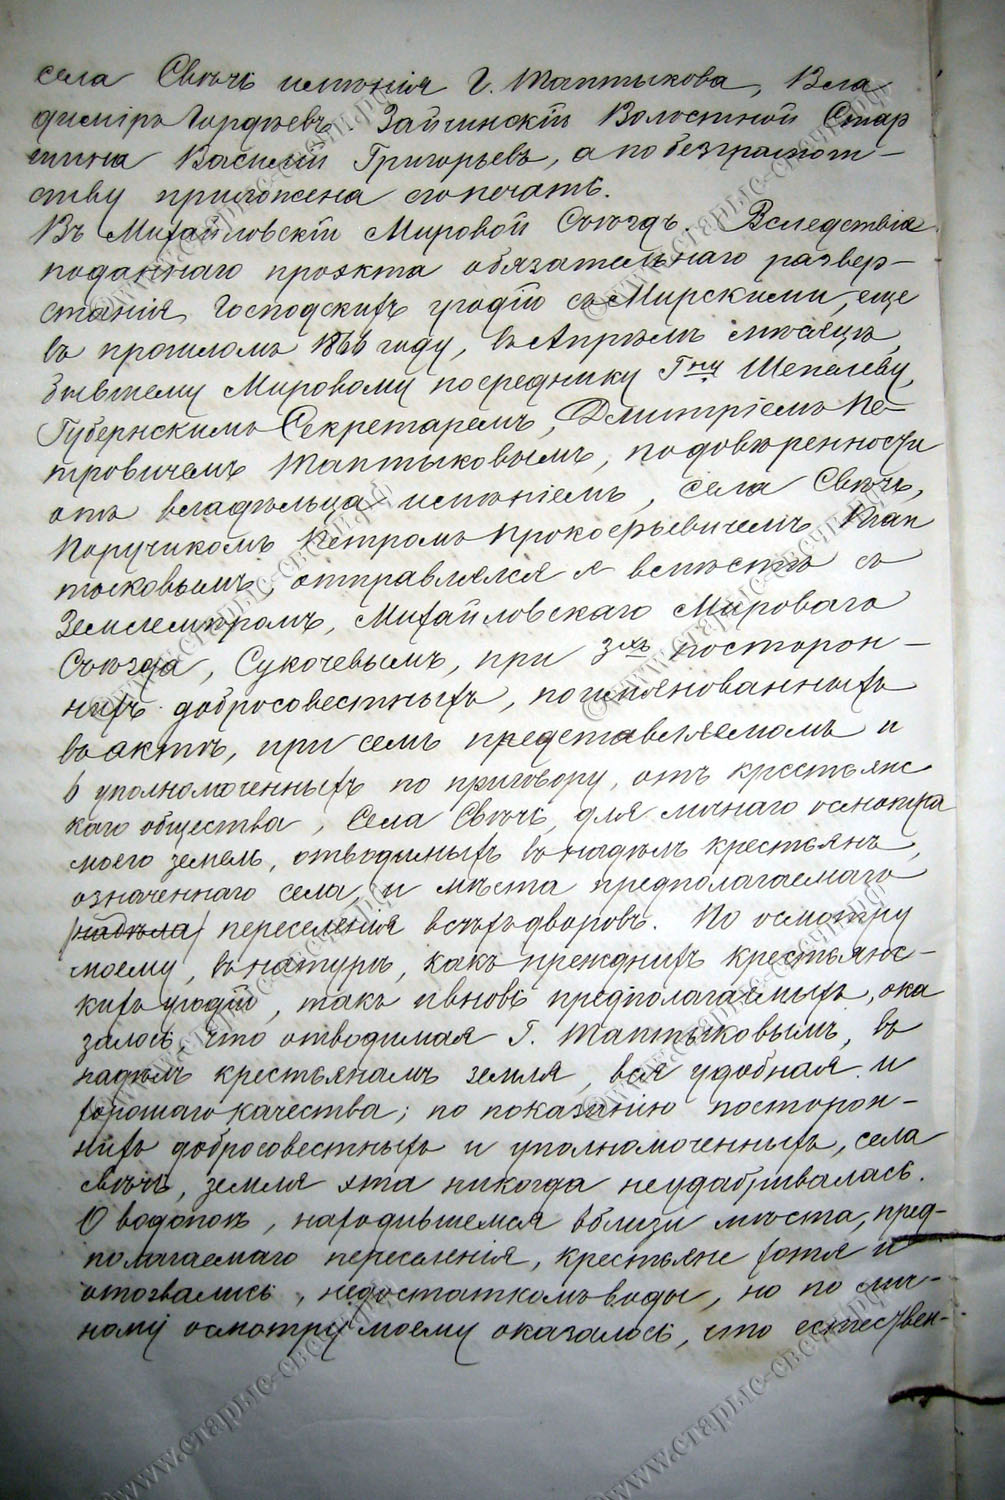 села Свѣчь имѣнія Г. Таптыкова, Вла
диміръ Гордѣевъ. Зайчинскій Волостной Стар
шина Василій Григорьевъ, а по безграмот-
ству приложена его печать.
Въ Михайловскій Мировой Съѣздъ. Вследствіе
поданнаго проэкта обязательнаго развер-
станія Господскихъ угодій съ Мирскими, еще
въ прошломъ 1866 году, въ Апрѣлѣ мѣсяцѣ,
бывшему Мировому посреднику Гну Шепелеву,
Губернскимъ Секретаремъ, Дмитріемъ Пе-
тровичемъ Таптыковымъ, по довѣренности
отъ владѣльца имѣніемъ, села Свѣчь,
Поручикомъ Петромъ Прокофьевичемъ Тап
тыковымъ, отправлялся я вмѣстѣ съ
Землемѣромъ, Михайловскаго Мироваго
Съѣзда, Сукочевымъ, при 3хъ посторон-
нихъ добросовестныхъ, поименованныхъ
въ актѣ, при семъ представляемомъ и
6 уполномоченныхъ по приговору, отъ крестьянс
каго общества, Села Свѣчь, для личнаго осмотра
моего земель, отводимыхъ въ надѣлъ крестьянъ,
означеннаго села и мѣста предполагаемаго
(надѣла) переселенія всѣхъ дворовъ. По осмотру
моему, въ натурѣ, какъ прежднихъ крестьянс-
кихъ угодій, такъ и вновь предполагаемыхъ, ока
залось, что отводимая Г. Таптыковымъ, въ
надѣлъ крестьянамъ земля, вся удобная и
хорошаго качества; по показанію посторон-
нихъ добросовестныхъ и уполномоченныхъ, села
Свѣчь, земля эта никогда неудабривалась.
О водопоѣ, находившемся вблизи мѣста, пред-
полагаемаго переселенія, крестьяне хотя и
отозвались, недостаткомъ воды, но по лич-
ному осмотру моему оказалось, что естествен-
©www.старыс-свсчи.рф